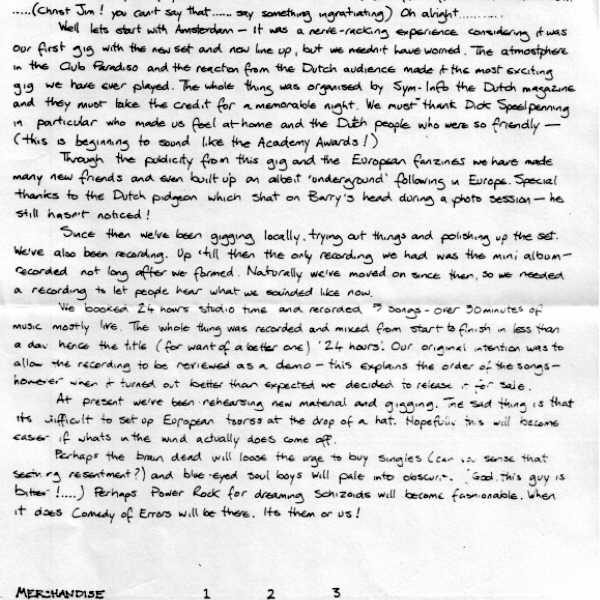 .....(Christ Jim! you can't say that...... say something ingratiating) Oh alright..........
Well lets start with Amsterdam - it was a nerve-racking experience considering it was
our first gig with the new set and new line up, but we needn't have worried. The atmostphere
in the Club Paradiso and the reaction from the Dutch audience made it the most exciting
gig we have ever played. The whole thing was organised by Sym-Info the Dutch magazine
and they must take the credit for a memorable night. We must thank Dick Speelpenning
in particular who made us feel at home and the Dutch people who were so friendly —
(this is beginning to sound like the Academy Awards!)
Through the publicity from this gig and the European fanzines we have made
many new friends and even built up an albeit 'underground' following in Europe. Special
thanks to the Dutch pidgeon which shat on Barry's head during a photo session — he
still hasn't noticed!
Since then we've been gigging locally, trying out things and polishing up the set.
We've also been recording. Up 'till then the only recording we had was the mini album-
recorded not long after we formed. Naturally we've moved on since then, so we needed
a recording to let people hear what we sounded like now.
We booked 24 hours studio time and recorded 5 songs - over 30 minutes of
music mostly live. The whole thing was recorded and mixed from start to finish in less than
a day hence the title (for want of a better one) '24 hours'. Our original intention was to
allow the recording to be reviewed as a demo - this explains the order of the songs-
however when it turned out better than expected we decided to release it for sale.
At present we've been rehearsing new material and gigging. The sad thing is that
its difficult to set up European tours at the drop of a hat. Hopefully this will become
easier if whats in the wind actually does come off.
Perhaps the brain dead will loose the urge to buy singles (can you sense that
seething resentment?) and blue-eyed soul boys will pale into obscurit. (God this guy is
bitter!....) Perhaps Power Rock for dreaming Schizoids will become fashionable. When
it does Comedy of Errors will be there. Its them or us!
MERCHANDISE 1 2 3